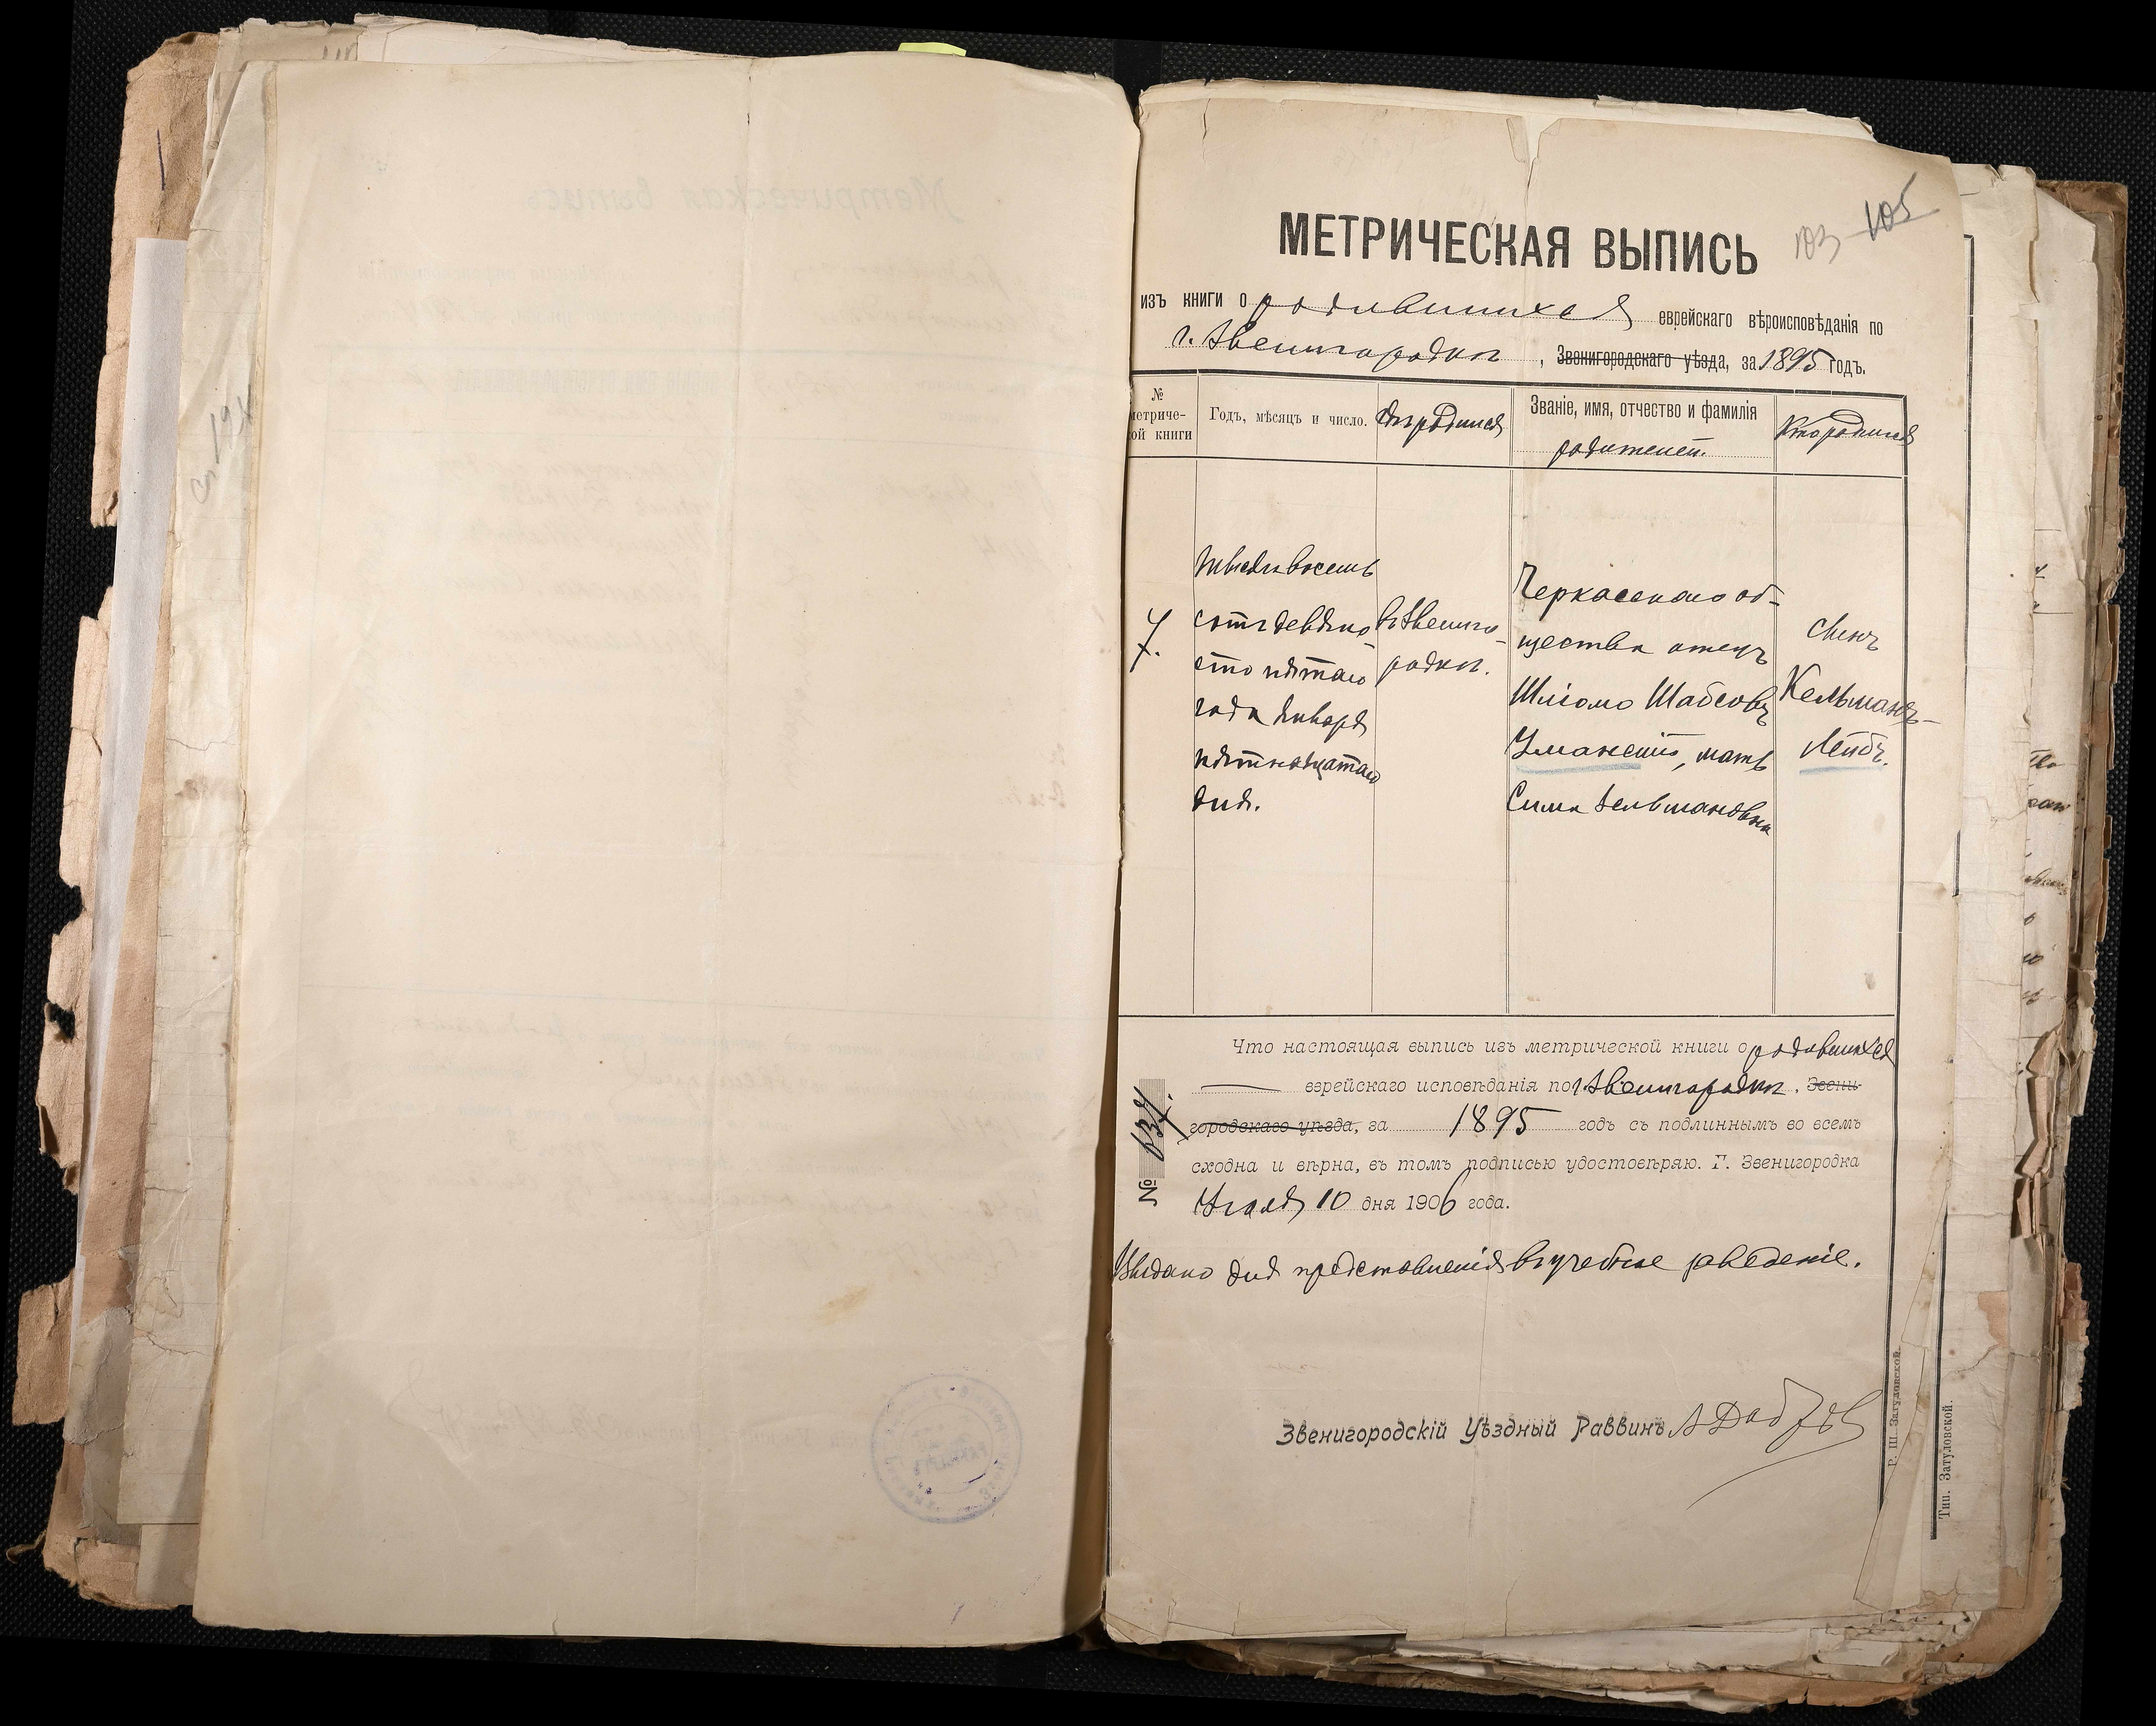 103 105
МЕТРИЧЕСКАЯ ВЫПИСЬ
изъ книги о родившихся еврейскаго вѣроисповѣданія по
г. Звенигородкѣ, Звенигородскаго уѣзда, за 1895 годъ.
№ метриче-
ой книги
Годъ, мѣсяцъ и число.
Гдѣ родился
Званіе, имя, отчество и фамилія
родителей.
Кто родился
7.
тысяча восемь
сотъ девяно
сто пятаго
года Января
пятнадцатаго
дня.
въ Звениго-
родкѣ.
Черкасскаго об-
щества отецъ
Шліомо Шабсовъ
Уманскій, мать
Сима Зельмановна
сынъ
Кельманъ-
Лейбъ.
Что настоящая выпись изъ метрической книги о родившихся
еврейскаго исповѣданія по г. Звенигородкѣ. Звени-
городскаго уѣзда, за 1895 годъ съ подлиннымъ во всемъ
сходна и вѣрна, въ томъ подписью удостовѣряю. Г. Звенигородка
10 дня 1906 года.
№ 637.
Выдано для представленія въ учебное заведеніе.
Звенигородскій Уѣздный Раввинъ
Р. Ш. Затуловской.
Тип. Затуловской.